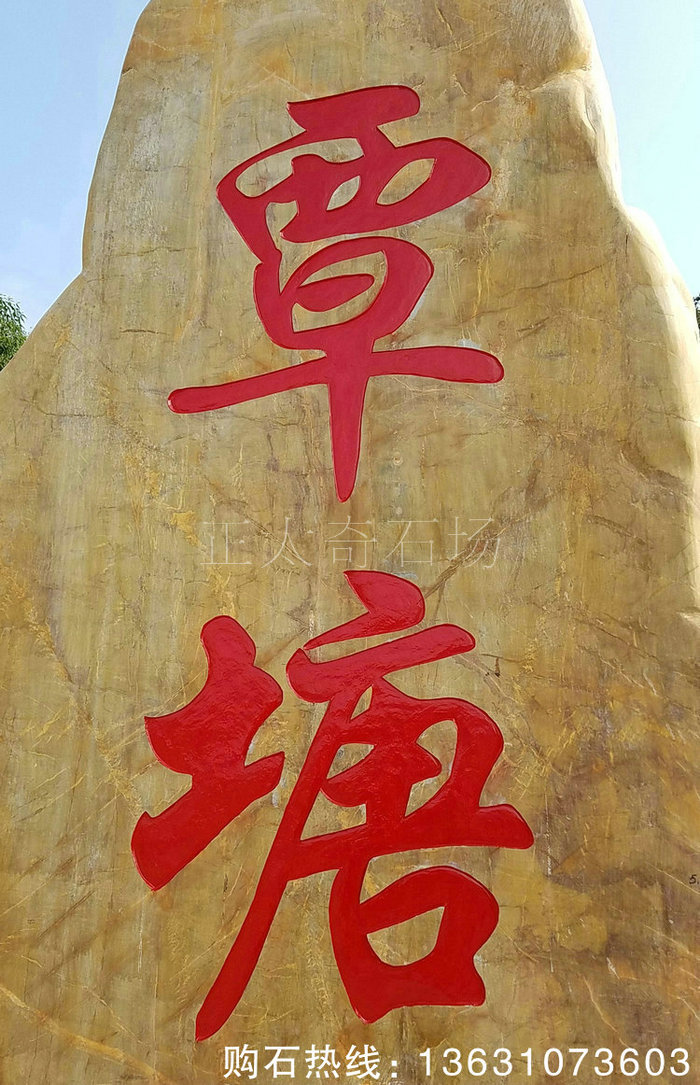 覃
塘
正人奇石场
购石热线：13631073603